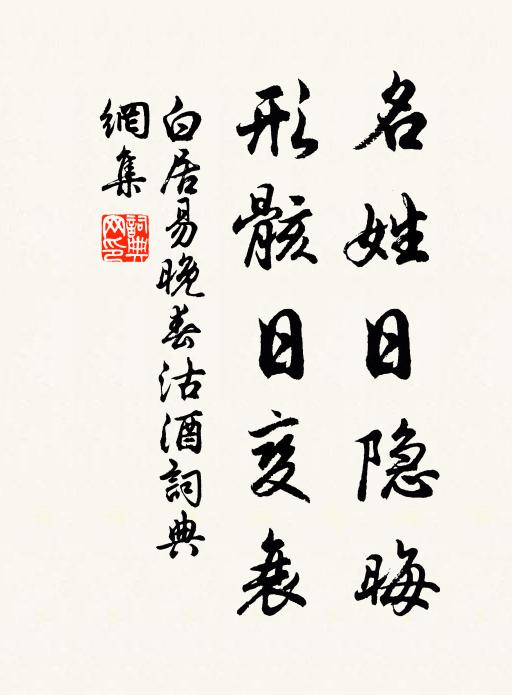 名姓日隐晦
形骸日变衰
白居易晚春沽酒詞典
網集
詞典
网印